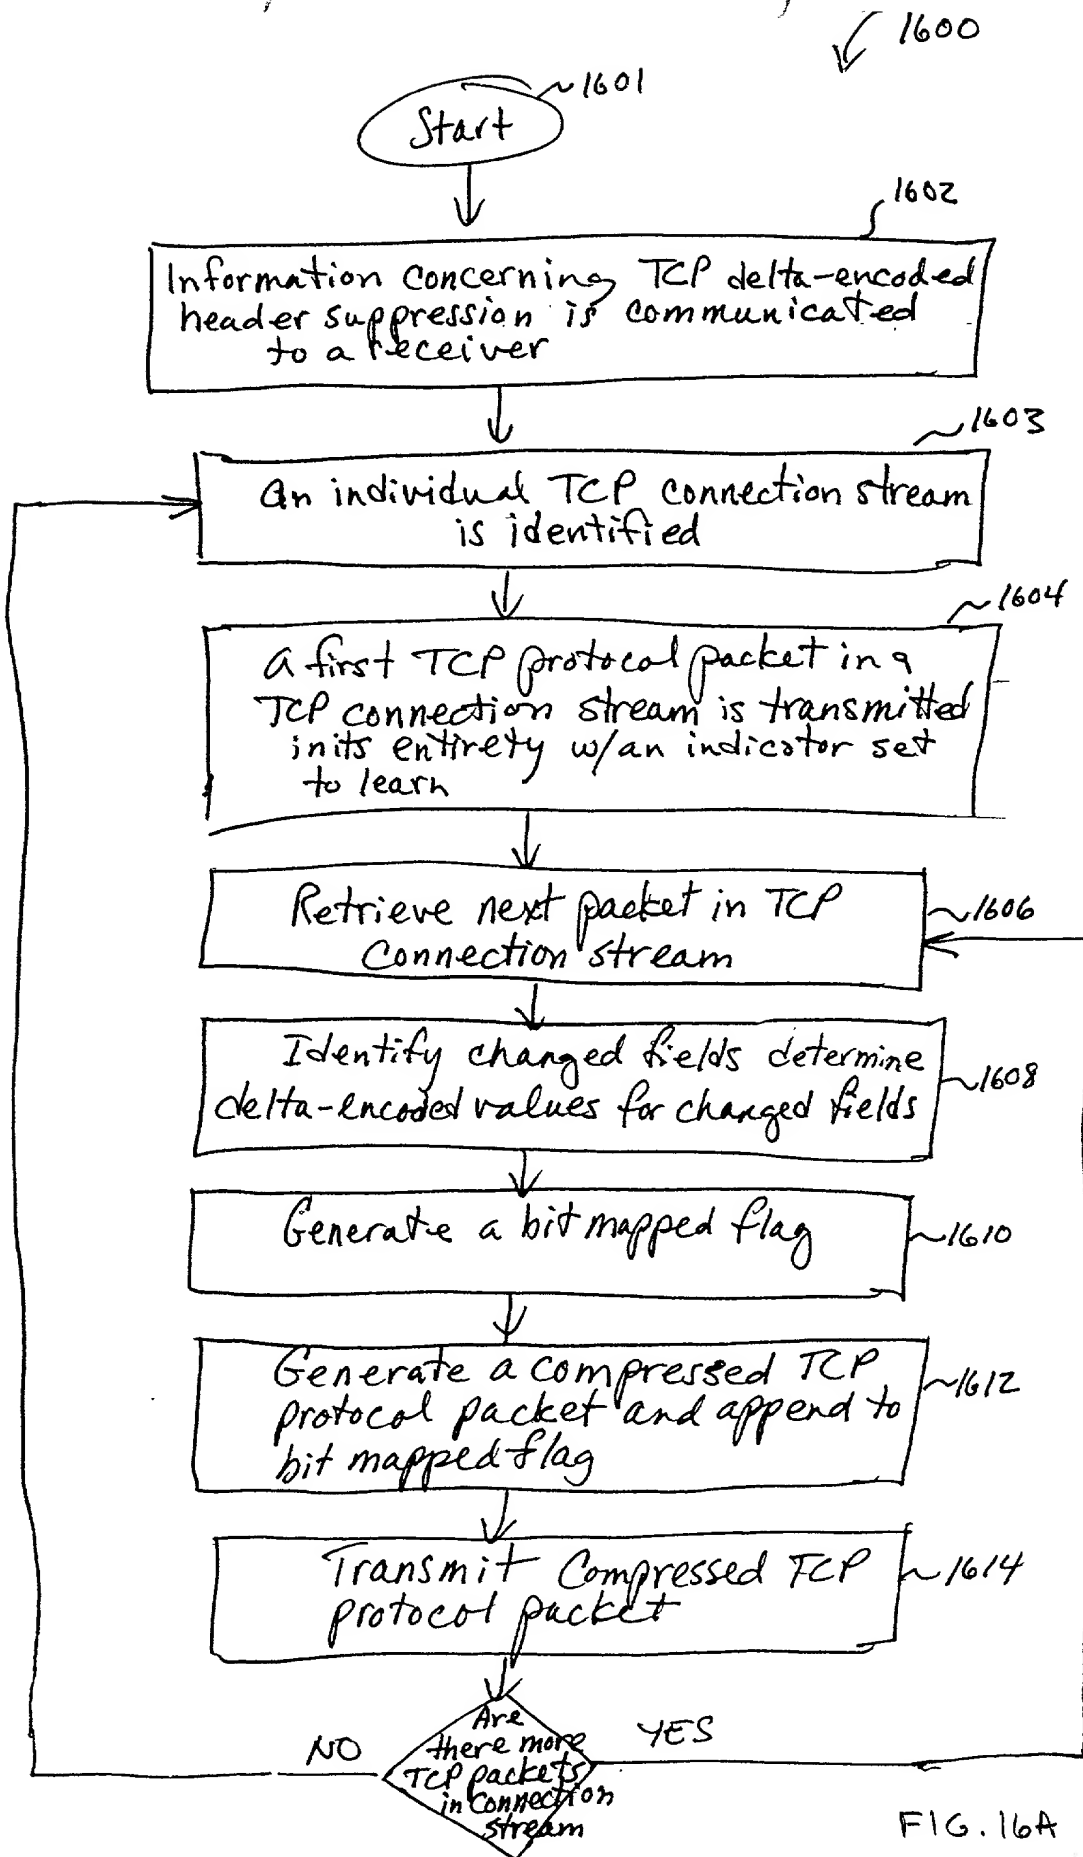 1600
Start
1601
1602
Information concerning TCP delta-encoded
header suppression is communicated
to a receiver
1603
An individual TCP connection stream
is identified
1604
A first TCP protocol packet in a
TCP connection stream is transmitted
in its entirety w/an indicator set
to learn
Retrieve next packet in TCP
Connection stream
1606
Identify changed fields determine
delta-encoded values for changed fields
1608
Generate a bit mapped flag
1610
Generate a compressed TCP
protocol packet and append to
bit mapped flag
1612
Transmit Compressed TCP
protocol packet
1614
Are
there more
TCP packets
in Connection
stream
NO
YES
FIG. 16A